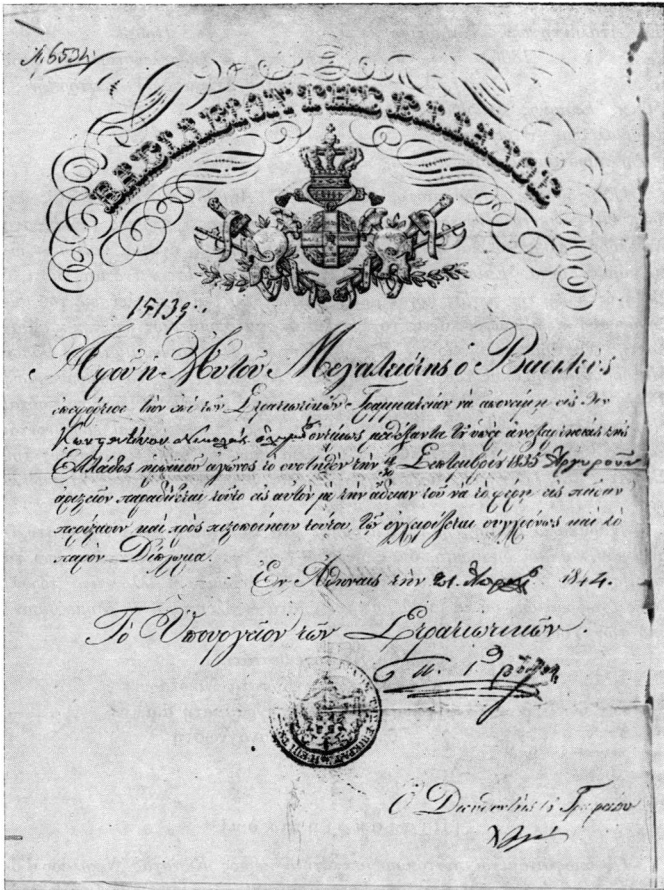 ΒΑΣΙΛΕΙΟΝ ΤΗΣ ΕΛΛΑΔΟΣ
Ἀφοῦ ἡ Αὐτοῦ Μεγαλειότης ὁ Βασιλεὺς
τὴν ἐπὶ τῶν Στρατιωτικῶν Γραμματείαν νὰ ἀπονείμῃ εἰς τὸν
Κωνσταντίνον Νικολάου τοῦ ὑπὲρ ἀνεξαρτησίας τῆς
Ἑλλάδος ἀγῶνος τὸ συστηθὲν τὴν Σεπτεμβρίου 1835 Ἀργυροῦν
ἀριστεῖον παραδίδεται τοῦτο εἰς αὐτὸν μὲ τὴν ἄδειαν τοῦ νὰ τὸ φέρῃ εἰς πᾶσαν
περίστασιν καὶ πρὸς πιστοποίησιν τούτου, τῷ ἐγχειρίζεται συγχρόνως καὶ τὸ
παρὸν Δίπλωμα.
Ἐν Ἀθήναις τὴν 21 1844.
Τὸ Ὑπουργεῖον τῶν Στρατιωτικῶν.
Ὁ Διευθυντὴς τοῦ Γραφείου